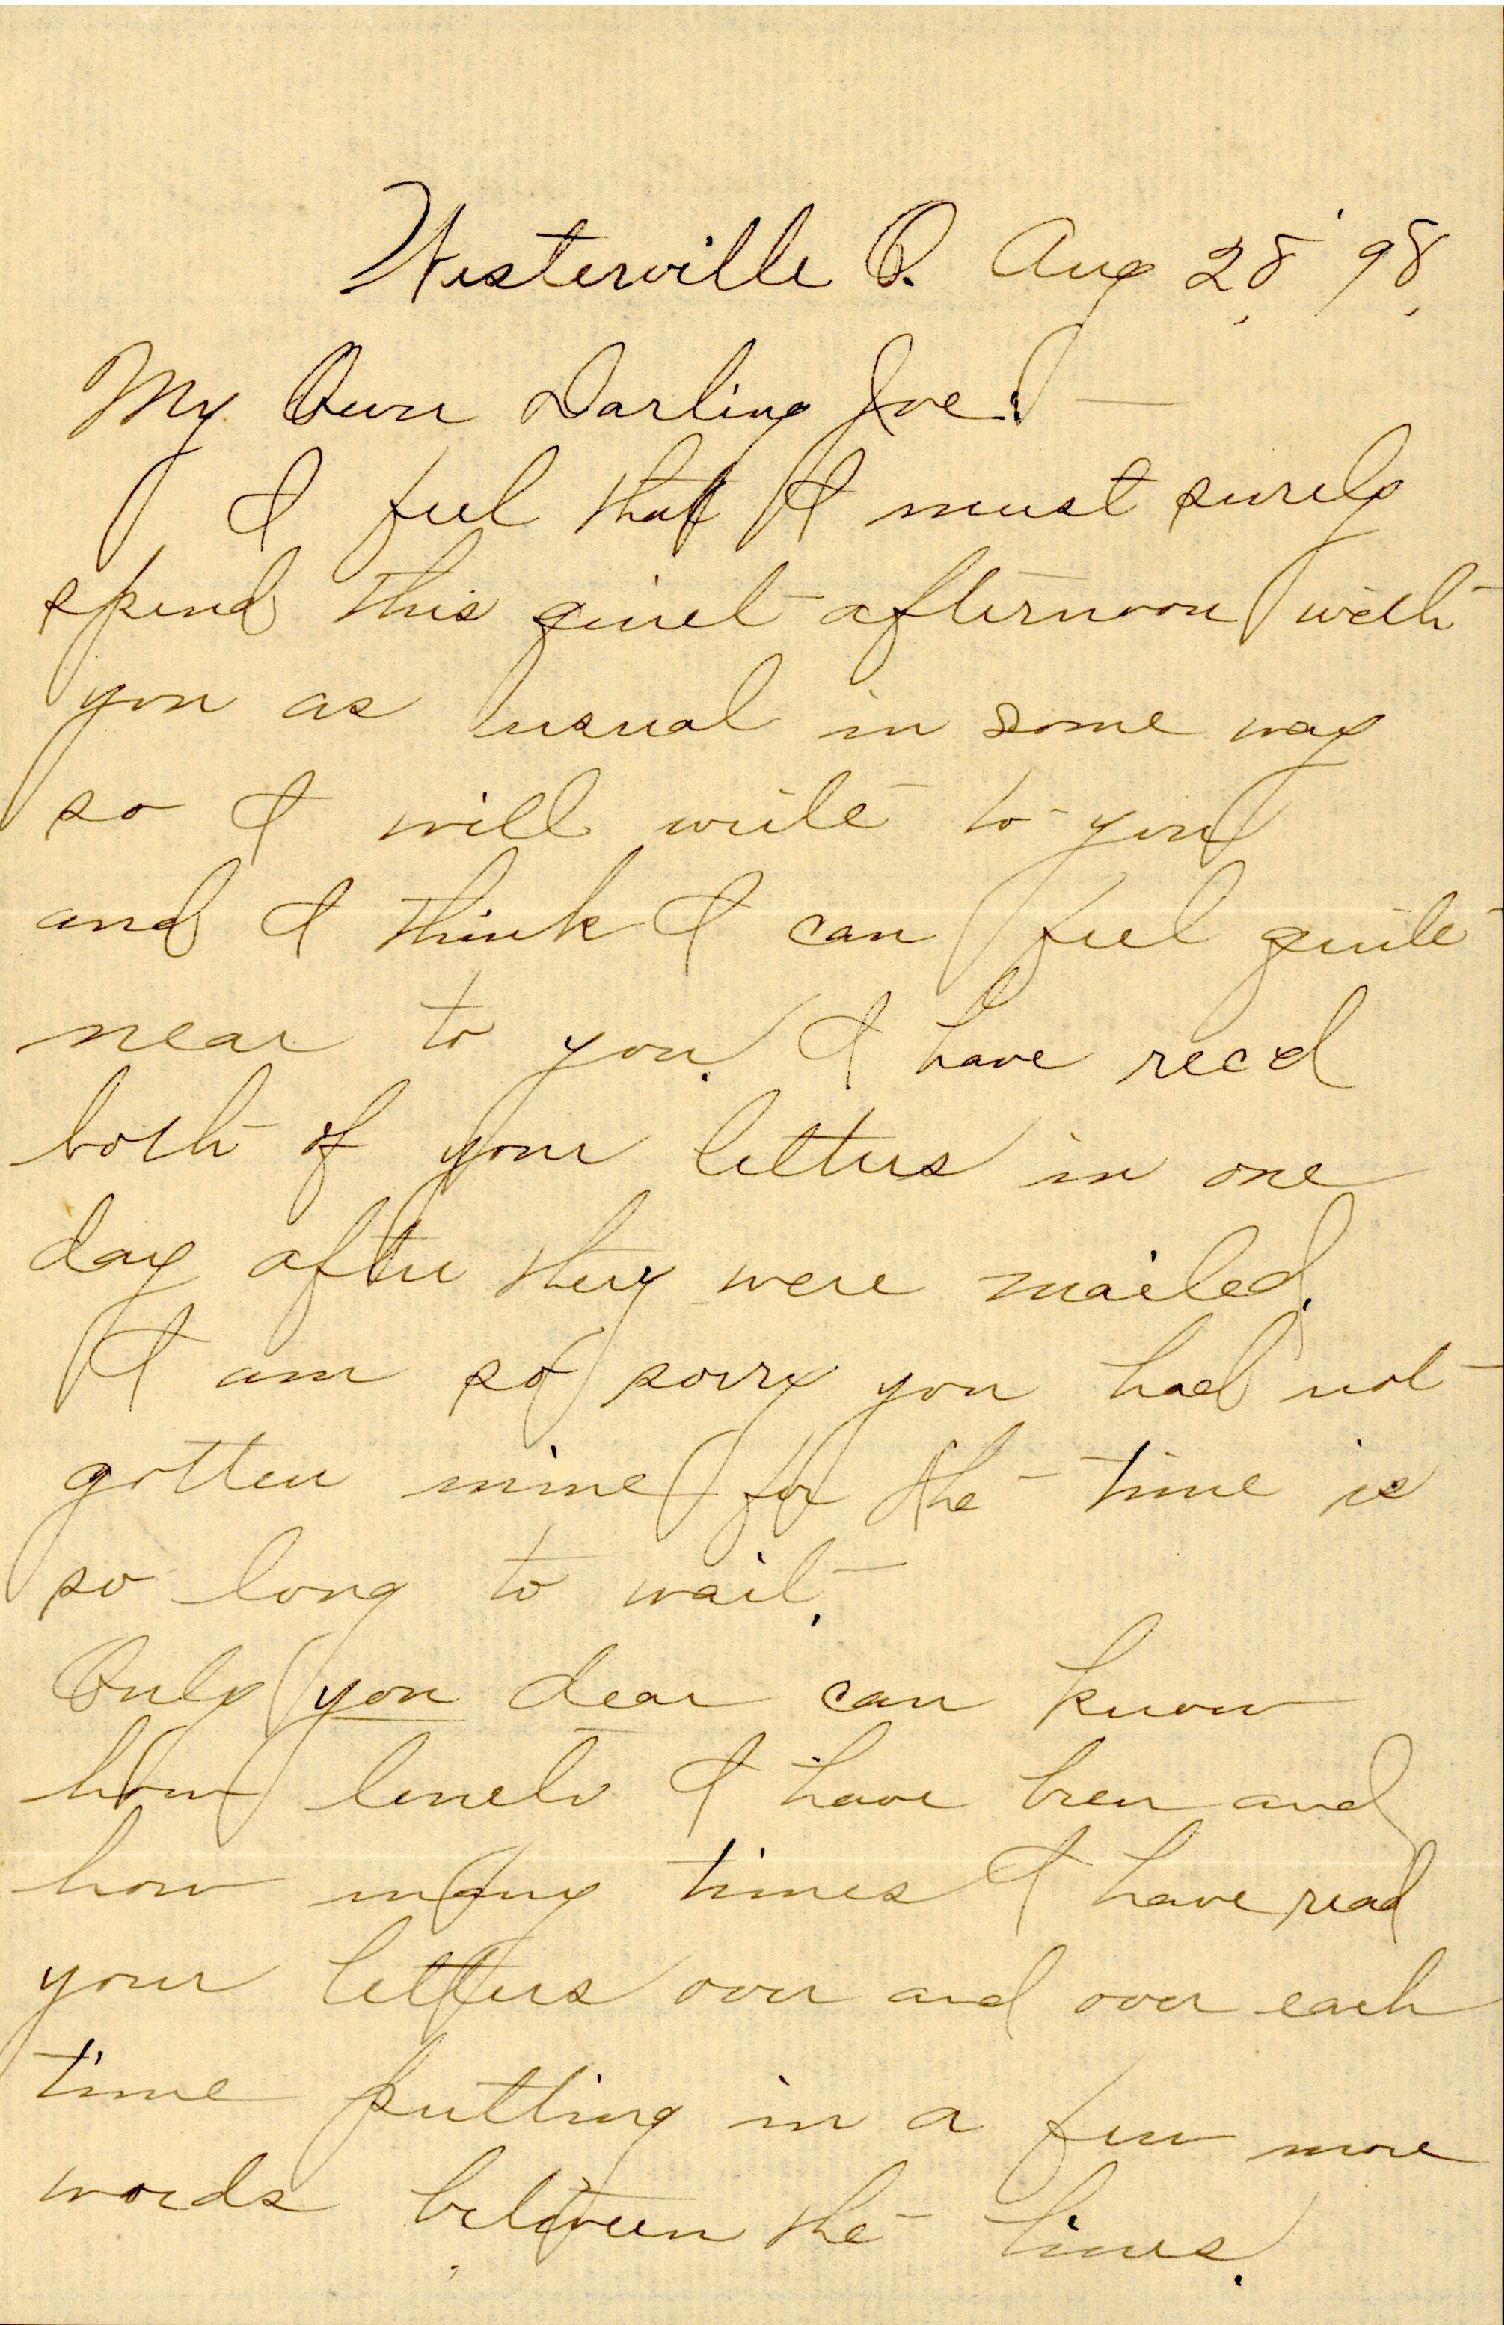 Westerville O. Aug 28, '98,
My Own Darling Joe! —
I feel that I must surely
spend this quiet afternoon with
you as usual in some way
so I will write to you
and I think I can feel quite
near to you. I have rec'd
both of your letters in one
day after they were mailed.
I am so sorry you had not
gotten mine for the time is
so long to wait.
Only you dear can know
how lonely I have been and
how many times I have read
your letters over and over each
time putting in a few more
words between the lines.